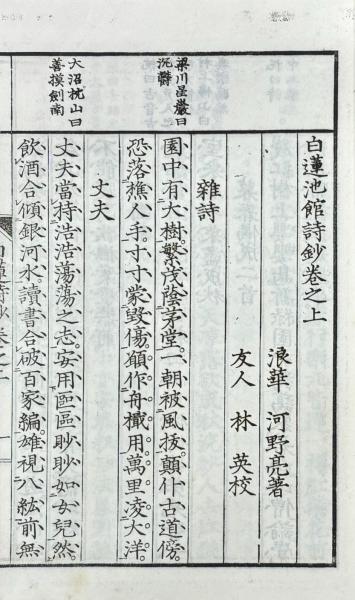 白蓮池館詩鈔卷之上
浪華 河野亮著
友人 林 英校
梁川星巖曰
沉鬱
雜詩
園中有大樹。繁茂蔭茅堂。一朝被風拔。顛仆古道傍。
恐落樵人手。寸寸蒙毀傷。願作舟檝用。萬里凌大洋。
大沼枕山曰
善摸劍南
丈夫
丈夫當持浩浩蕩蕩之志。安用區區眇眇如女兒然。
飲酒合傾銀河水。讀書合破百家編。雄視八紘前無